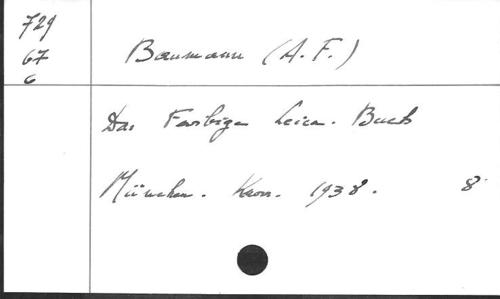 729
67
6
Baumann (A. F.)
Das Farbige Leica-Buch
München. Knorr. 1938. 8